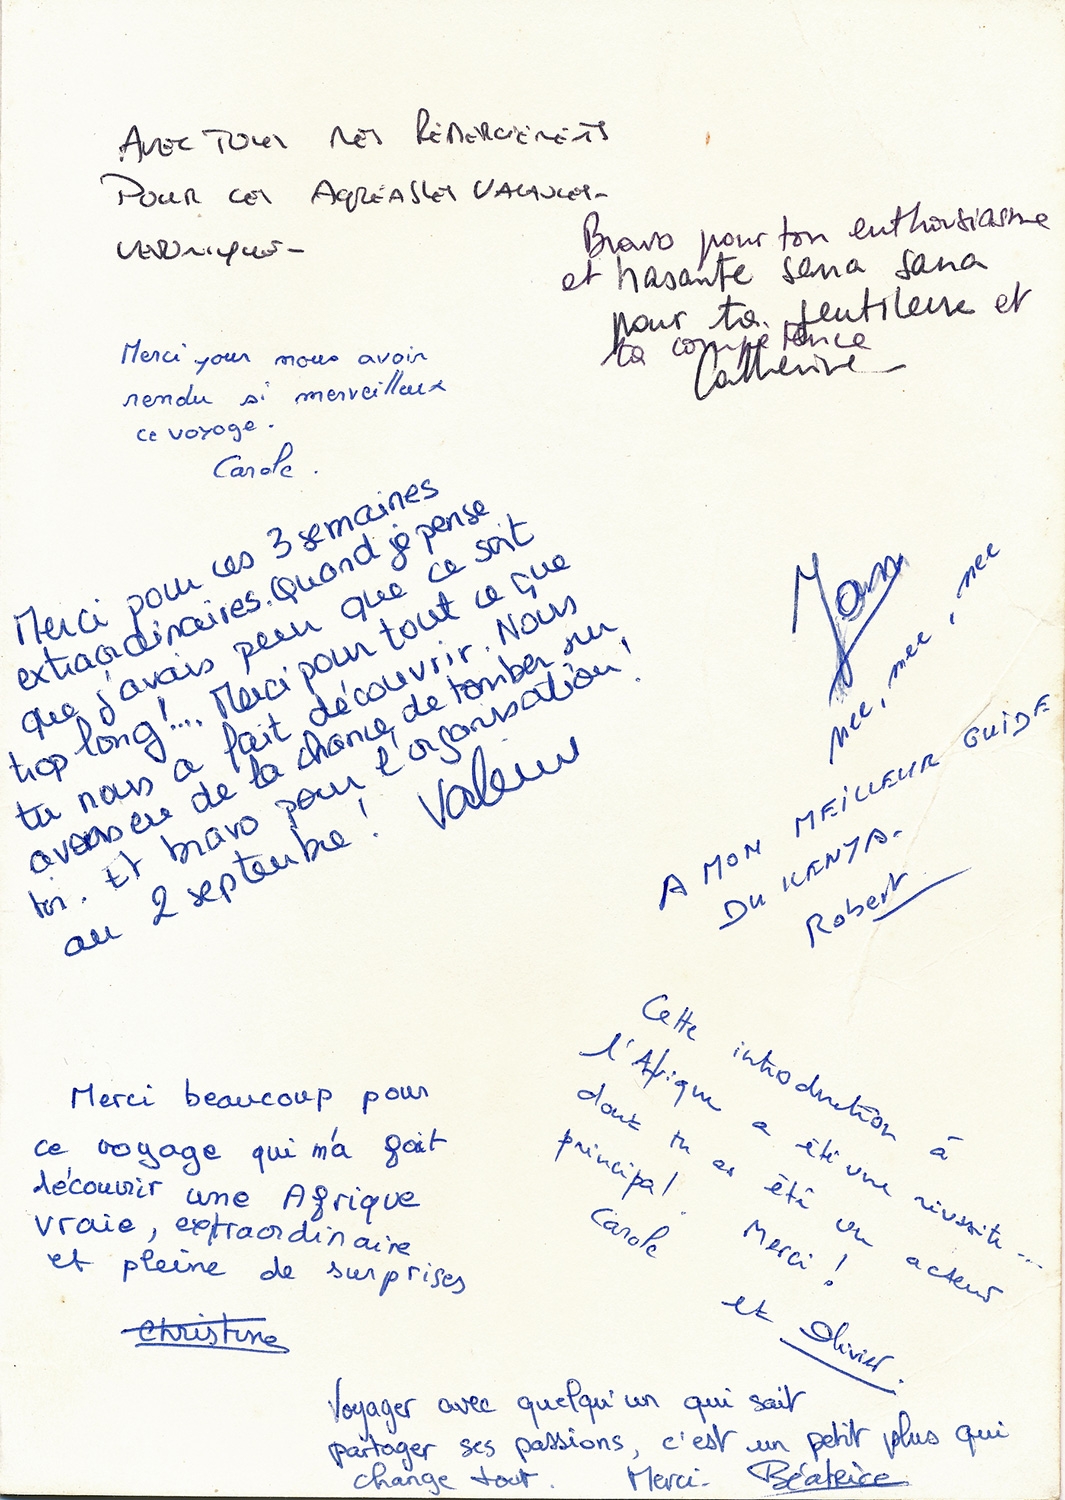 AVEC TOUS MES REMERCIEMENTS
POUR CES AGREABLES VACANCES-
VERONIQUE-
Bravo pour ton enthousiasme
et hasante sana sana
pour ta gentillesse et
ta compétence
Catherine
Merci pour nous avoir
rendu si merveilleux
ce voyage.
Carole.
Merci pour ces 3 semaines
extraordinaires. Quand je pense
que j'avais peur que ce soit
trop long!... Merci pour tout ce que
tu nous a fait découvrir. Nous
avons eu de la chance de tomber sur
toi. Et bravo pour l'organisation!
au 2 septembre! Valérie
nee, nee, nee, nee
A MON MEILLEUR GUIDE
DU KENYA.
Robert
Cette introduction à
l'Afrique a été une réussite...
dont tu as été un acteur
principal! Merci!
Carole
et Olivier.
Merci beaucoup pour
ce voyage qui m'a fait
découvrir une Afrique
vraie, extraordinaire
et pleine de surprises
Christine
Voyager avec quelqu'un qui sait
partager ses passions, c'est un petit plus qui
change tout. Merci- Béatrice